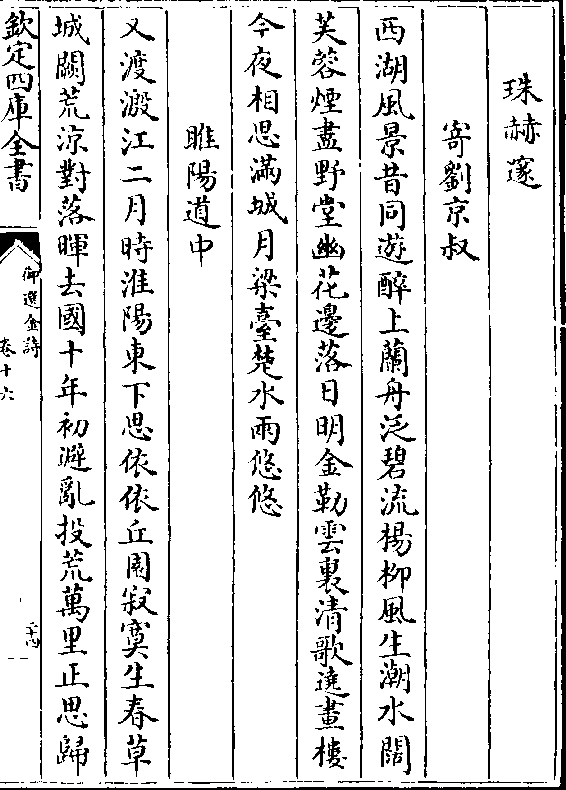 珠赫邃
寄劉京叔
西湖風景昔同遊醉上蘭舟泛碧流楊柳風生潮水闊
芙蓉煙盡野堂幽花邊落日明金勒雲裏清歌遶畫樓
今夜相思滿城月梁臺楚水兩悠悠
睢陽道中
又渡澱江二月時淮陽東下思依依丘園寂寞生春草
城闕荒涼對落暉去國十年初避亂投荒萬里正思歸
欽定四庫全書
御選金詩
卷十六
二十四